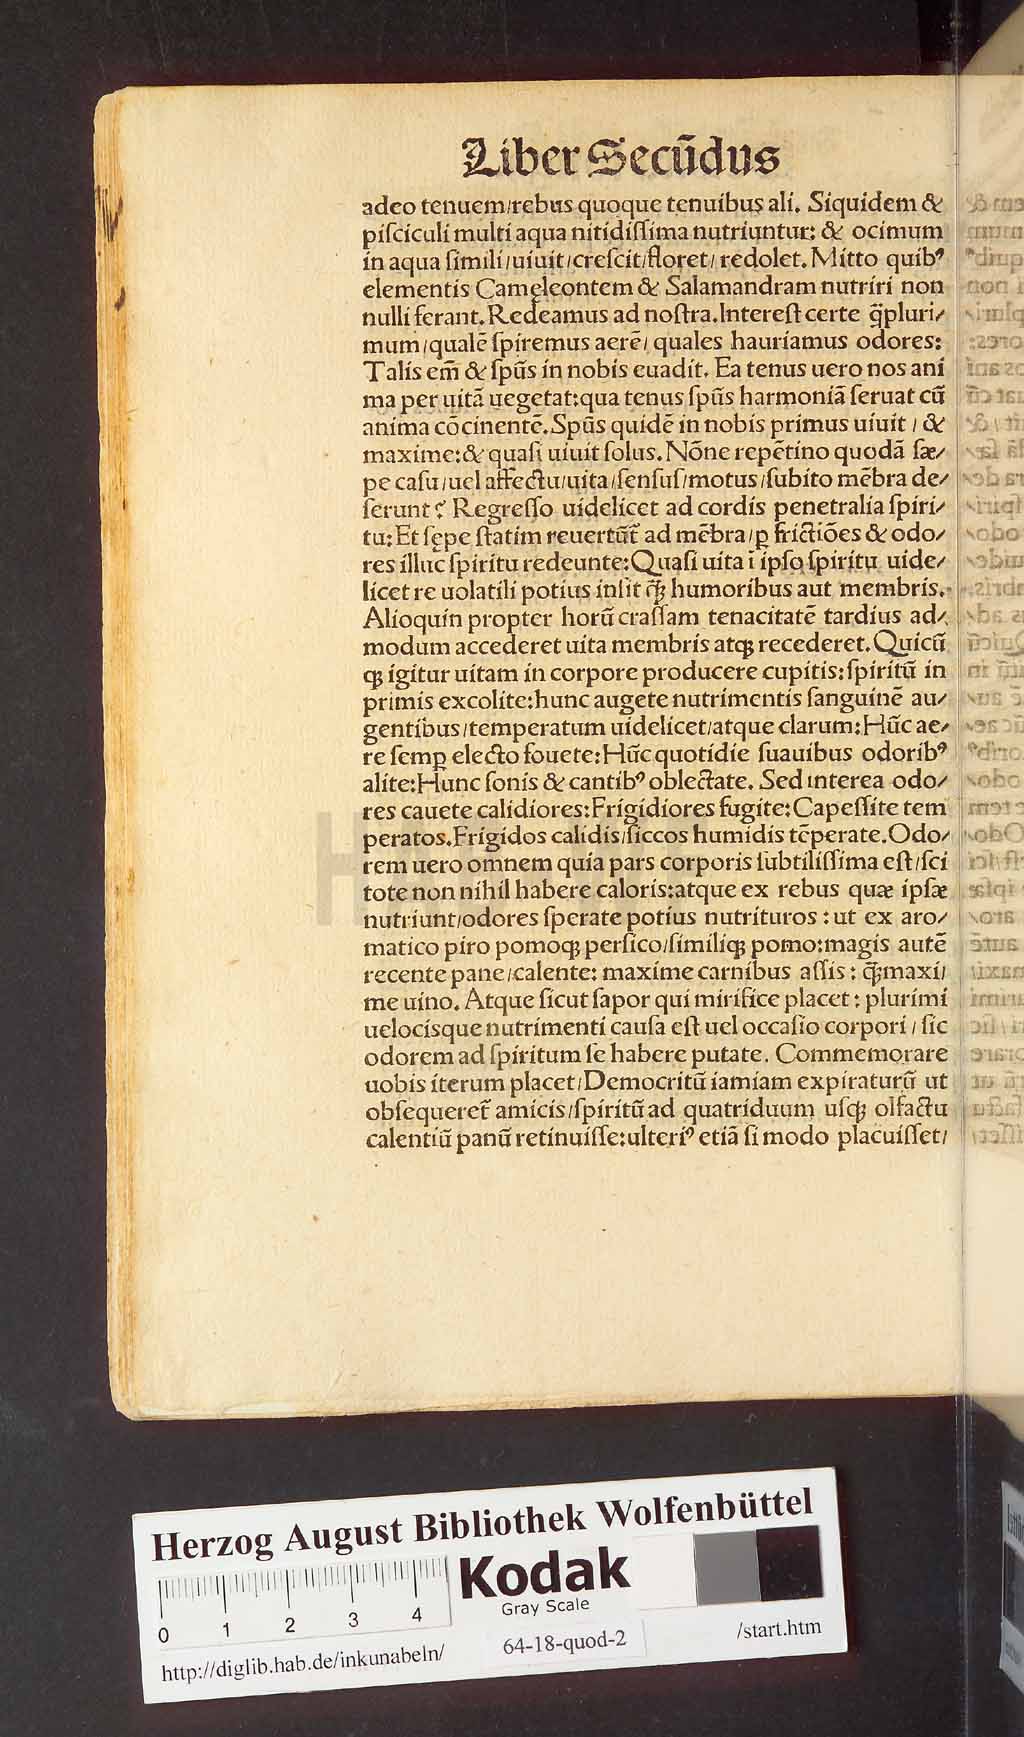 Liber Secūdus
adeo tenuem/rebus quoque tenuibus ali. Siquidem &
piſciculi multi aqua nitidiſſima nutriuntur: & ocimum
in aqua ſimili/uiuit/creſcit/floret/ redolet. Mitto quibꝰ
elementis Cameleontem & Salamandram nutriri non
nulli ferant. Redeamus ad noſtra. Intereſt certe q̄pluri/
mum/qualē ſpiremus aerē/ quales hauriamus odores:
Talis em̄ & ſpūs in nobis euadit. Ea tenus uero nos ani
ma per uitā uegetat:qua tenus ſpūs harmoniā ſeruat cū
anima cōcinentē. Spūs quidē in nobis primus uiuit / &
maxime:& quaſi uiuit ſolus. Nōne repētino quodā ſæ/
pe caſu/uel affectu/uita/ſenſuſ/motus/ſubito mēbra de/
ſerunt? Regreſſo uidelicet ad cordis penetralia ſpiri/
tu: Et ſępe ſtatim reuertūt᷑ ad mēbra/ꝑ frictiōes & odo/
res illuc ſpiritu redeunte: Quaſi uita ī ipſo ſpiritu uide/
licet re uolatili potius inſit q̄ꝫ humoribus aut membris.
Alioquin propter horū craſſam tenacitatē tardius ad/
modum accederet uita membris atqꝫ recederet. Quicū
qꝫ igitur uitam in corpore producere cupitis: ſpiritū in
primis excolite:hunc augete nutrimentis ſanguinē au/
gentibus/temperatum uidelicet/atque clarum: Hūc ae/
re ſemꝑ electo fouete: Hūc quotidie ſuauibus odoribꝰ
alite: Hunc ſonis & cantibꝰ oblectate. Sed interea odo/
res cauete calidiores: Frigidiores fugite: Capeſſite tem
peratos. Frigidos calidis/ſiccos humidis tēperate. Odo/
rem uero omnem quia pars corporis ſubtiliſſima eſt/ſci
tote non nihil habere caloris:atque ex rebus quæ ipſæ
nutriunt/odores ſperate potius nutrituros : ut ex aro/
matico piro pomoqꝫ perſico/ſimiliqꝫ pomo:magis autē
recente pane/calente: maxime carnibus aſſis : q̄ꝫmaxi/
me uino. Atque ſicut ſapor qui mirifice placet : plurimi
uelocisque nutrimenti cauſa eſt uel occaſio corpori / ſic
odorem ad ſpiritum ſe habere putate. Commemorare
uobis iterum placet/Democritū iamiam expiraturū ut
obſequeret᷑ amicis/ſpiritū ad quatriduum uſqꝫ olfactu
calentiū panū retinuiſſe:ulteriꝰ etiā ſi modo placuiſſet/
Herzog August Bibliothek Wolfenbüttel
Kodak
Gray Scale
0 1 2 3 4
64-18-quod-2
http://diglib.hab.de/inkunabeln/
/start.htm